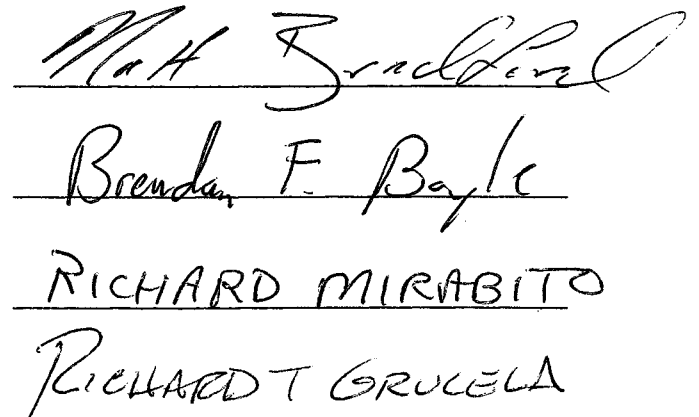 Matt Bradford
Brendan F. Boyle
RICHARD MIRABITO
RICHARD T GRUCELA